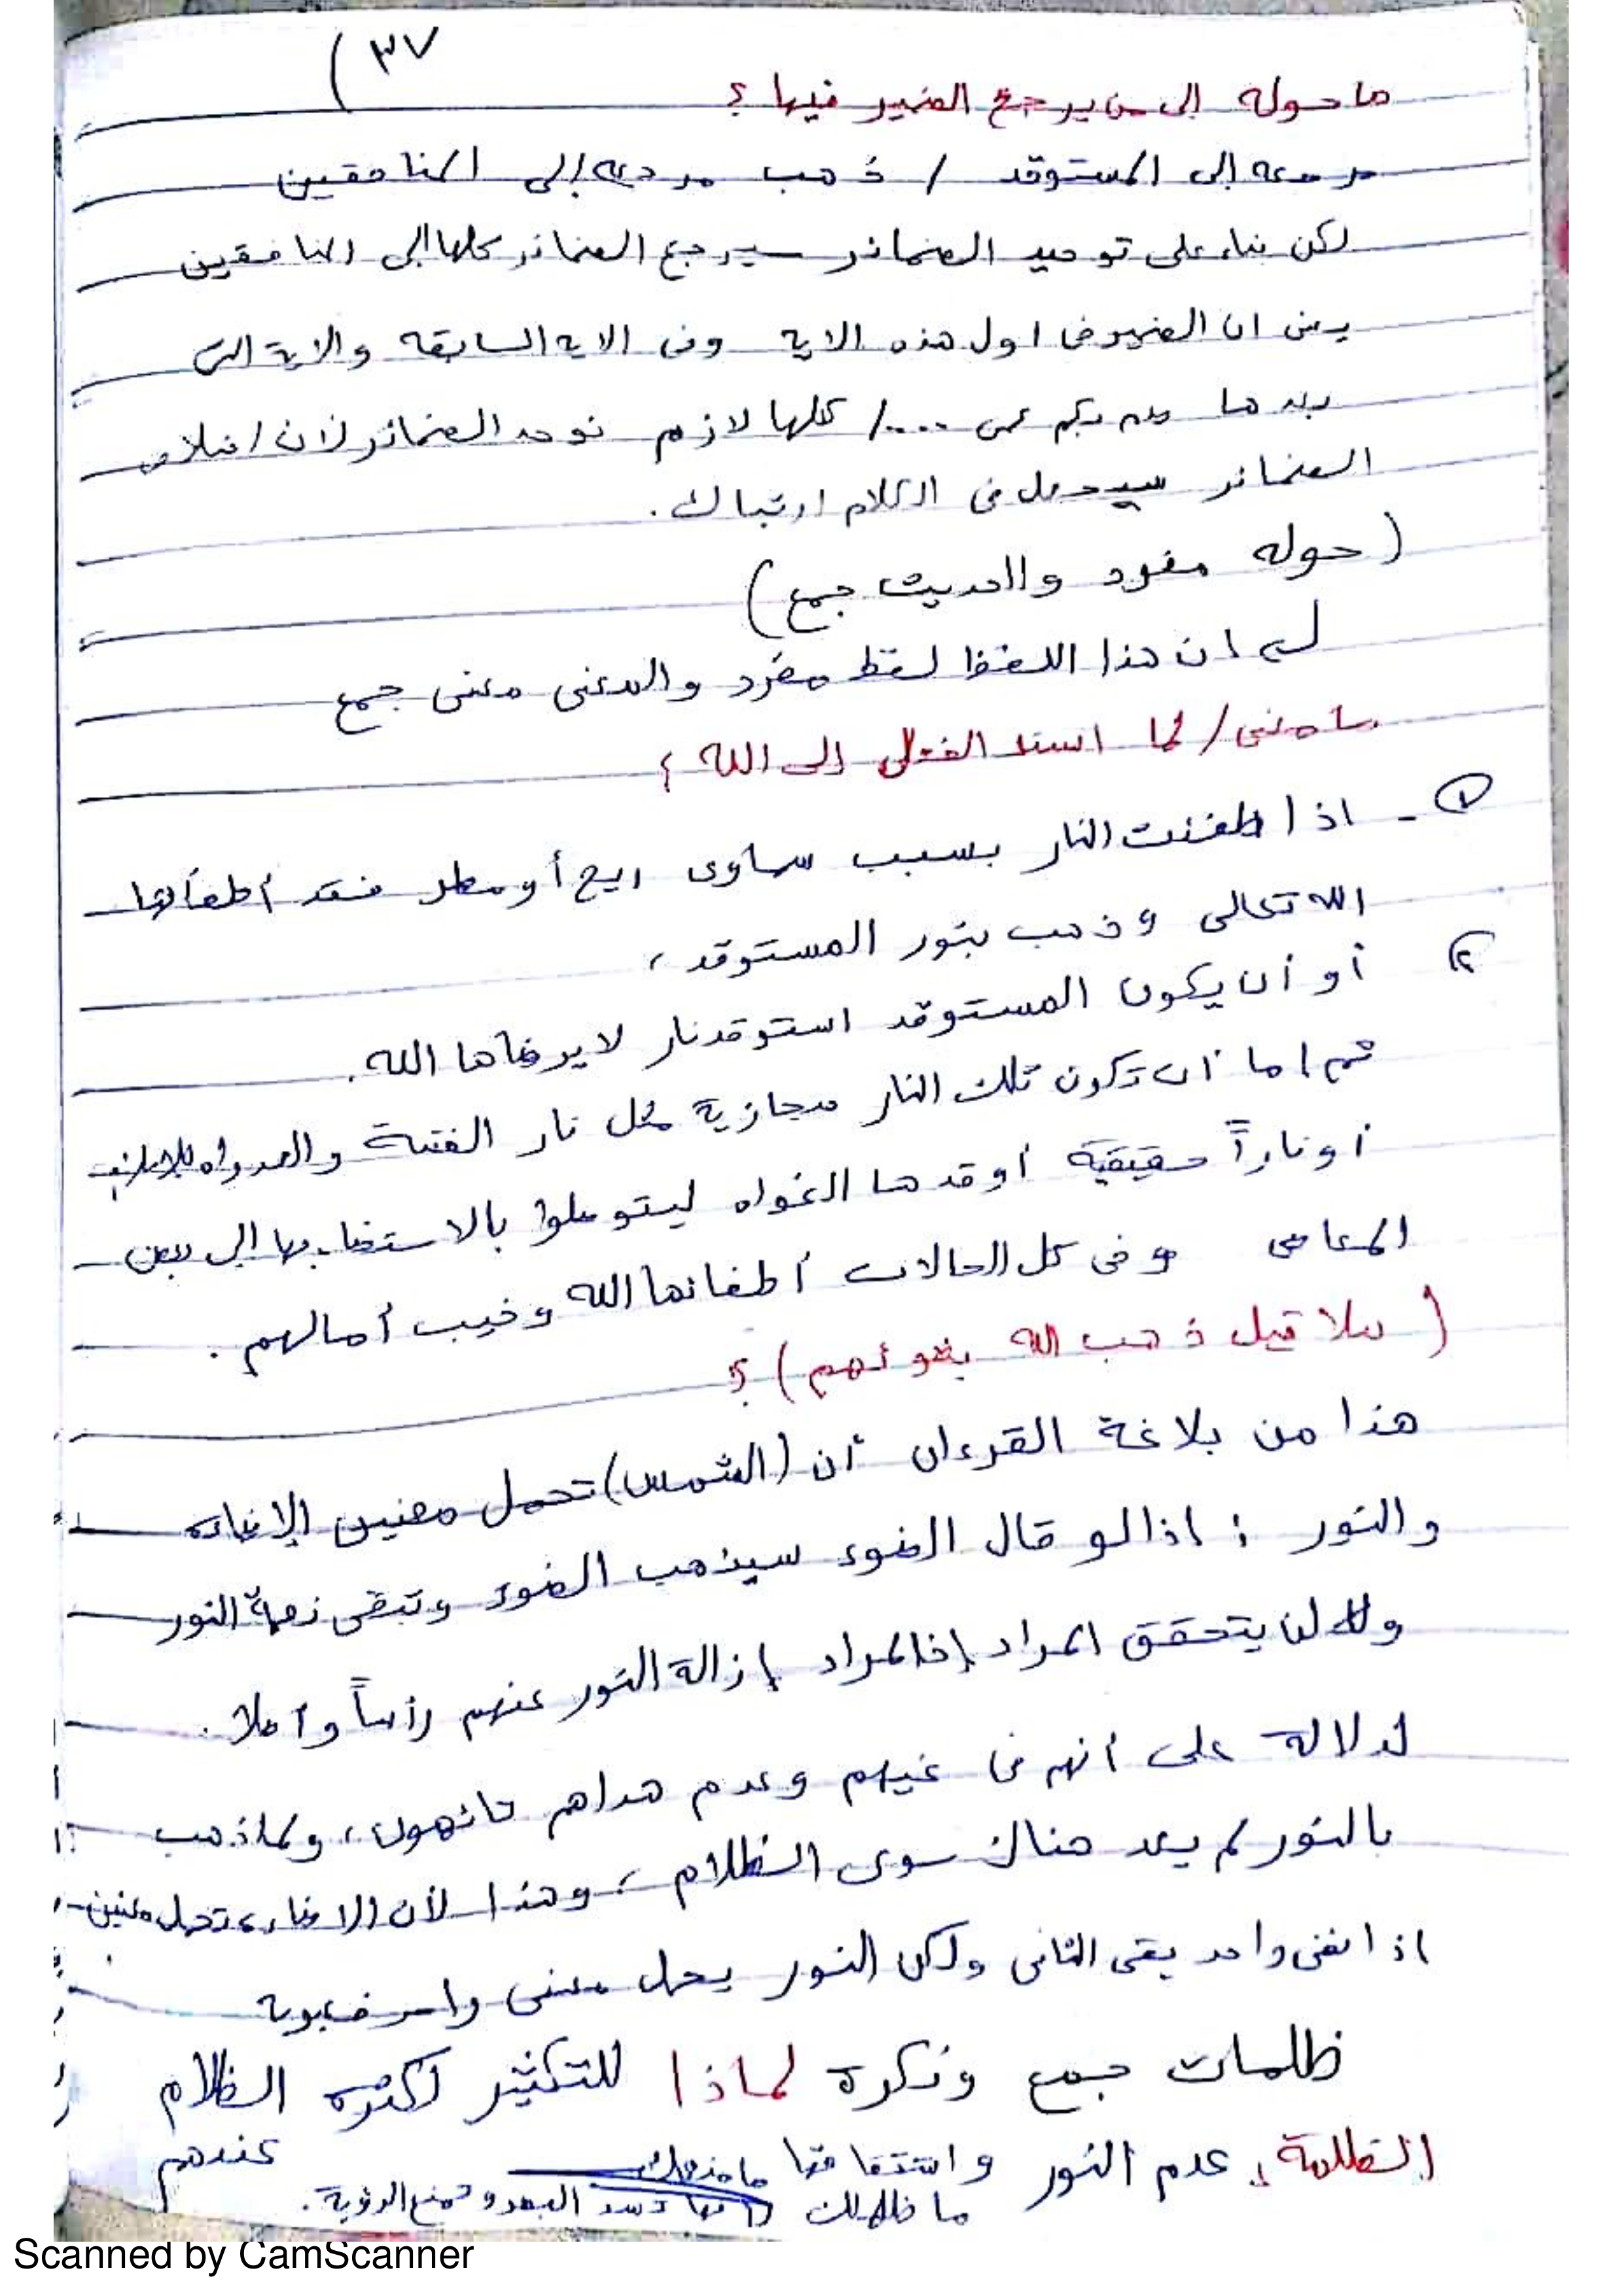 ٣٧
ما حوله إلى من يرجع الضمير فيها ؟
مرجعه إلى المستوقد / ذهب مرجعه إلى المنافقين
لكن بناء على توحيد الضمائر سيرجع الضمائر كلها الى المنافقين
يعني ان الضمير في اول هذه الاية وفي الاية السابقة والاية التي
بعدها صم بكم عمي ..../ كلها لازم نوحد الضمائر لان اختلاف
الضمائر سيدخل في الكلام ارتباك .
( حوله مفرد والحديث جمع )
ان هذا اللفظ لفظ مفرد والمعنى معنى جمع
ما معنى / لما اسند الفعل إلى الله ؟
١ - اذا طفئت النار بسبب سماوى ريح أو مطر فقد أطفأها
الله تعالى وذهب بنور المستوقد ،
٢ أو أن يكون المستوقد استوقد نار لا يرضاها الله .
ثم اما أن تكون تلك النار مجازية مثل نار الفتنة والعدواه للاسلام
أو ناراً حقيقية أوقدها الغواه ليتوصلوا بالاستضاءه بها إلى بعض
المعاصي وفي كل الحالات أطفائها الله وخيب أمالهم .
( هلا قيل ذهب الله بضوئهم ) ؟
هذا من بلاغة القرءان أن (الشمس) تحمل معنيين الإضاءه
والنور ؛ اذا لو قال الضوء سيذهب الضوء وتبقى زهاة النور
ولن يتحقق المراد إذ المراد إزالة النور عنهم رأساً وأصلا .
لدلالة على أنهم في غيهم وعدم هداهم تائهون ، ولما ذهب
بالنور لم يعد هناك سوى الظلام ، وهذا لأن الاضاءه تحمل معنين
اذا نفي واحد بقى الثاني ولكن النور يحمل معنى واحد
ظلمات جمع ونكرة لماذا للتكثير لكثره الظلام
عندهم
الظلمة : عدم النور واشتقاقها
ما ظلمك لانها تسد البصر وتمنع الرؤية .
Scanned by CamScanner